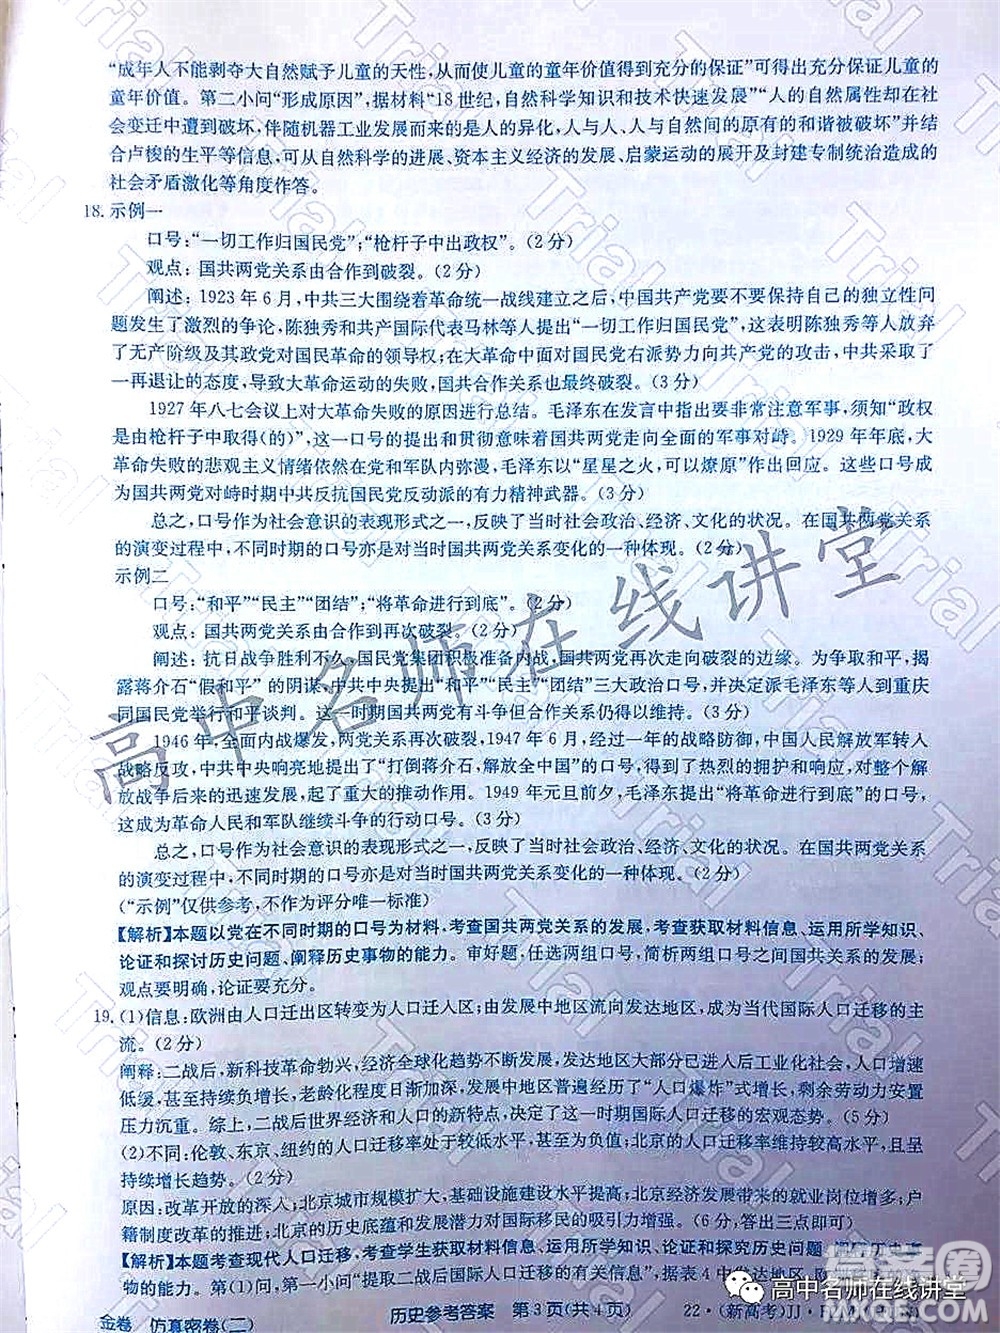 “成年人不能剥夺大自然赋予儿童的天性，从而使儿童的童年价值得到充分的保证”可得出充分保证儿童的
童年价值。第二小问“形成原因”，据材料“18世纪，自然科学知识和技术快速发展”“人的自然属性却在社
会变迁中遭到破坏，伴随机器工业发展而来的是人的异化，人与人、人与自然间的原有的和谐被破坏”并结
合卢梭的生平等信息，可从自然科学的进展、资本主义经济的发展、启蒙运动的展开及封建专制统治造成的
社会矛盾激化等角度作答。
18. 示例一
口号：“一切工作归国民党”；“枪杆子中出政权”。(2分)
观点：国共两党关系由合作到破裂。(2分)
阐述：1923年6月，中共三大围绕着革命统一战线建立之后，中国共产党要不要保持自己的独立性问
题发生了激烈的争论，陈独秀和共产国际代表马林等人提出“一切工作归国民党”，这表明陈独秀等人放弃
了无产阶级及其政党对国民革命的领导权；在大革命中面对国民党右派势力向共产党的攻击，中共采取了
一再退让的态度，导致大革命运动的失败，国共合作关系也最终破裂。(3分)
1927年八七会议上对大革命失败的原因进行总结。毛泽东在发言中指出要非常注意军事，须知“政权
是由枪杆子中取得(的)”，这一口号的提出和贯彻意味着国共两党走向全面的军事对峙。1929年年底，大
革命失败的悲观主义情绪依然在党和军队内弥漫，毛泽东以“星星之火，可以燎原”作出回应。这些口号成
为国共两党对峙时期中共反抗国民党反动派的有力精神武器。(3分)
总之，口号作为社会意识的表现形式之一，反映了当时社会政治、经济、文化的状况。在国共两党关系
的演变过程中，不同时期的口号亦是对当时国共两党关系变化的一种体现。(2分)
示例二
口号：“和平”“民主”“团结”；“将革命进行到底”。(2分)
观点：国共两党关系由合作到再次破裂。(2分)
阐述：抗日战争胜利不久，国民党集团积极准备内战，国共两党再次走向破裂的边缘。为争取和平，揭
露蒋介石“假和平”的阴谋，中共中央提出“和平”“民主”“团结”三大政治口号，并决定派毛泽东等人到重庆
同国民党举行和平谈判。这一时期国共两党有斗争但合作关系仍得以维持。(3分)
1946年，全面内战爆发，两党关系再次破裂。1947年6月，经过一年的战略防御，中国人民解放军转入
战略反攻，中共中央响亮地提出了“打倒蒋介石，解放全中国”的口号，得到了热烈的拥护和响应，对整个解
放战争后来的迅速发展，起了重大的推动作用。1949年元旦前夕，毛泽东提出“将革命进行到底”的口号，
这成为革命人民和军队继续斗争的行动口号。(3分)
总之，口号作为社会意识的表现形式之一，反映了当时社会政治、经济、文化的状况。在国共两党关系
的演变过程中，不同时期的口号亦是对当时国共两党关系变化的一种体现。(2分)
(“示例”仅供参考，不作为评分唯一标准)
【解析】本题以党在不同时期的口号为材料，考查国共两党关系的发展，考查获取材料信息、运用所学知识、
论证和探讨历史问题、阐释历史事物的能力。审好题，任选两组口号，简析两组口号关系的发展变化；
观点要明确，论证要充分。
19. (1)信息：欧洲由人口迁出区转变为人口迁入区；由发展中地区流向发达地区，成为当代国际人口迁移的主
流。(2分)
阐释：二战后，新科技革命勃兴，经济全球化趋势不断发展，发达地区大部分已进入后工业化社会，人口增速
低缓，甚至持续负增长，老龄化程度日渐加深；发展中地区普遍遭遇了“人口爆炸”式增长，剩余劳动力安置
压力沉重。综上，二战后世界经济和人口的新特点，决定了这一时期国际人口迁移的宏观态势。(5分)
(2)不同：伦敦、东京、纽约的人口迁移率处于较低水平，甚至为负值；北京的人口迁移率维持较高水平，且呈
持续增长趋势。(2分)
原因：改革开放的深入；北京城市规模扩大，基础设施建设水平提高；北京经济发展带来的就业岗位增多；户
籍制度改革的推进；北京的历史底蕴和发展潜力对国际移民的吸引力增强。(6分，答出三点即可)
【解析】本题考查现代人口迁移，考查学生获取材料信息、运用所学知识、论证和探究历史问题、阐释历史事
物的能力。第(1)问，第一小问“提取二战后国际人口迁移的有关信息”，据表4中
金卷 仿真密卷(二) 历史参考答案 第3页(共4页) 22·(新高考)JJ·
高中名师在线讲堂
高中名师在线讲堂
Trial